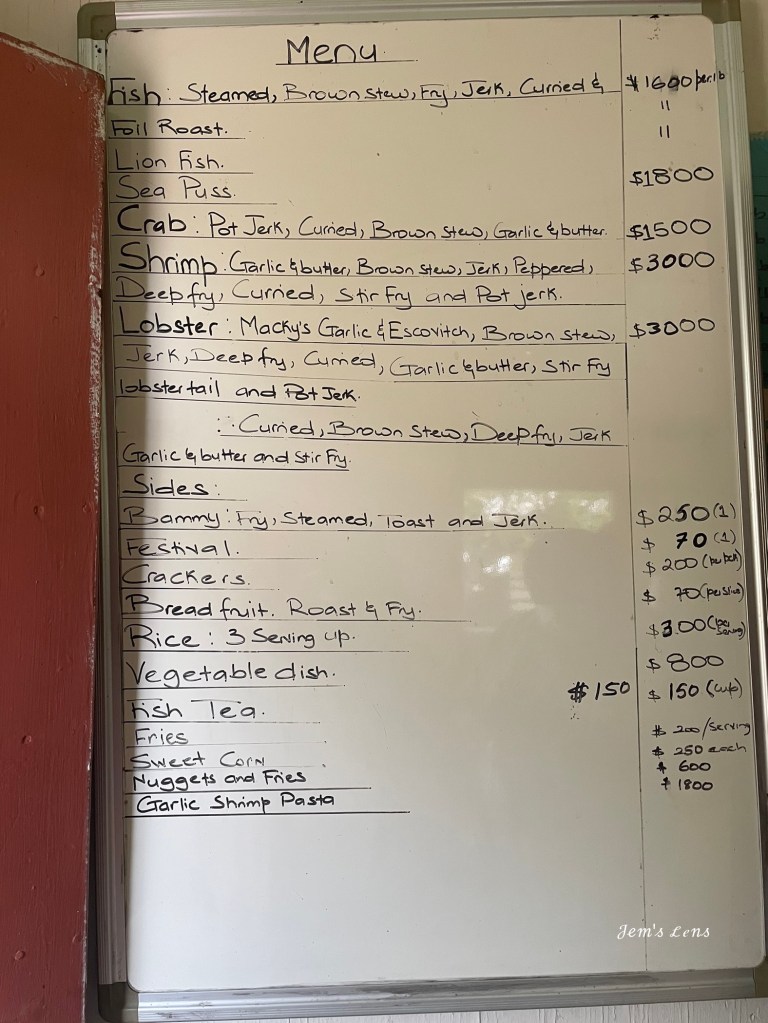 Menu
Fish: Steamed, Brown stew, Fry, Jerk, Curried & $1600 per lb
"
Foil Roast. "
Lion Fish.
Sea Puss. $1800
Crab: Pot Jerk, Curried, Brown stew, Garlic & butter. $1500
Shrimp: Garlic & butter, Brown stew, Jerk, Peppered, $3000
Deep fry, Curried, Stir Fry and Pot jerk.
Lobster: Macky's Garlic & Escovitch, Brown stew, $3000
Jerk, Deep fry, Curried, Garlic & butter, Stir Fry
lobster tail and Pot Jerk.
: Curried, Brown stew, Deep fry, Jerk
Garlic & butter and Stir Fry.
Sides:
Bammy: Fry, Steamed, Toast and Jerk. $250 (1)
Festival. $ 70 (1)
Crackers. $200
Bread fruit. Roast & Fry. $ 70 (per slice)
Rice: 3 Serving up. $300 (per serving)
Vegetable dish. $800
Fish Tea. $150 $150 (cup)
Fries $200/Serving
Sweet Corn $250 each
Nuggets and Fries $600
Garlic Shrimp Pasta $1800
Jem's Lens